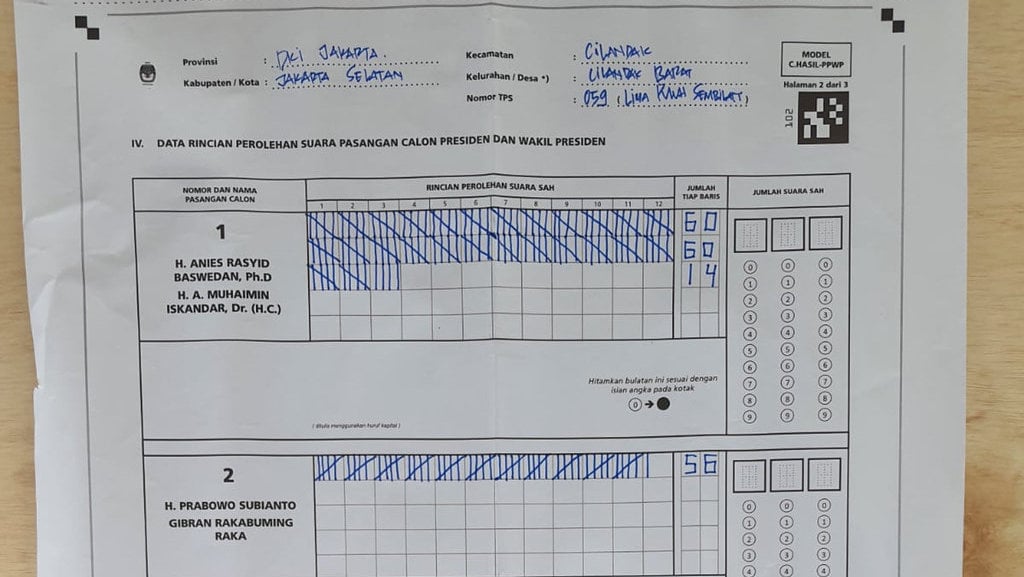 Provinsi : DKI JAKARTA.
Kabupaten / Kota : JAKARTA SELATAN
Kecamatan : CILANDAK
Kelurahan / Desa *) : CILANDAK BARAT
Nomor TPS : 059 (LIMA PULUH SEMBILAN)
MODEL
C.HASIL-PPWP
Halaman 2 dari 3
102
IV. DATA RINCIAN PEROLEHAN SUARA PASANGAN CALON PRESIDEN DAN WAKIL PRESIDEN
NOMOR DAN NAMA
PASANGAN CALON
RINCIAN PEROLEHAN SUARA SAH
1 2 3 4 5 6 7 8 9 10 11 12
JUMLAH
TIAP BARIS
JUMLAH SUARA SAH
1
H. ANIES RASYID
BASWEDAN, Ph.D
H. A. MUHAIMIN
ISKANDAR, Dr. (H.C.)
60
60
14
0 0 0
1 1 1
2 2 2
3 3 3
4 4 4
5 5 5
6 6 6
7 7 7
8 8 8
9 9 9
Hitamkan bulatan ini sesuai dengan
isian angka pada kotak
0
( ditulis menggunakan huruf kapital )
2
H. PRABOWO SUBIANTO
GIBRAN RAKABUMING
RAKA
56
0 0 0
1 1 1
2 2 2
3 3 3
4 4 4